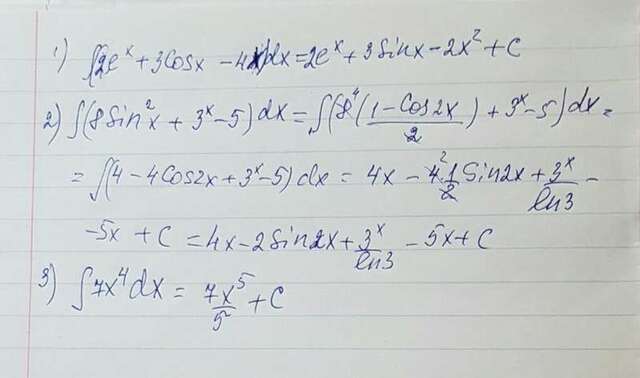 1) ∫(2e^x + 3Cosx - 4x)dx = 2e^x + 3Sinx - 2x² + C
2) ∫(8Sin²x + 3^x - 5)dx = ∫(8⁴(1 - Cos2x)/2 + 3^x - 5)dx =
= ∫(4 - 4Cos2x + 3^x - 5)dx = 4x - 4² 1/2 Sin2x + 3^x/ln3 -
-5x + C = 4x - 2Sin2x + 3^x/ln3 - 5x + C
3) ∫7x⁴dx = 7x⁵/5 + C